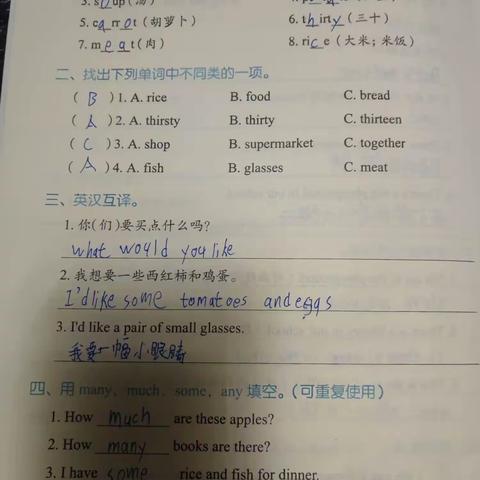 3. soup(汤)
5. carrot(胡萝卜) 6. thirty(三十)
7. meat(肉) 8. rice(大米；米饭)
二、找出下列单词中不同类的一项。
( B )1. A. rice B. food C. bread
( A )2. A. thirsty B. thirty C. thirteen
( C )3. A. shop B. supermarket C. together
( A )4. A. fish B. glasses C. meat
三、英汉互译。
1. 你(们)要买点什么吗?
what would you like
2. 我想要一些西红柿和鸡蛋。
I'd like some tomatoes and eggs
3. I'd like a pair of small glasses.
我要一幅小眼睛
四、用 many, much, some, any 填空。(可重复使用)
1. How much are these apples?
2. How many books are there?
3. I have some rice and fish for dinner.